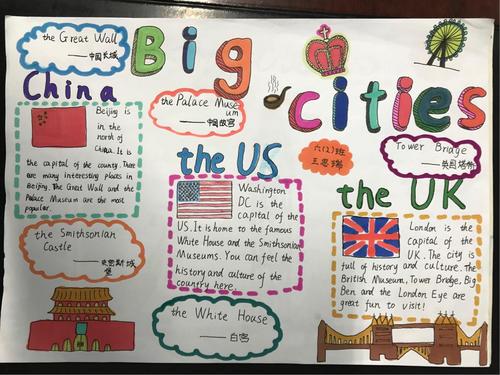 the Great Wall
——中国长城
Big
cities
China
Beijing is
in the
north of
China. It is
the capital of the country. There
are many interesting places in
Beijing. The Great Wall and the
Palace Museum are the most
popular.
the Palace Muse
um
——中国故宫
六(2)班
王思瑞
Tower Bridge
——英国塔桥
the US
Washington
DC is the
capital of the
US. It is home to the famous
White House and the Smithsonian
Museums. You can feel the
history and culture of the
country here.
the UK
London is the
capital of the
UK. The city is
full of history and culture. The
British Museum, Tower Bridge, Big
Ben and the London Eye are
great fun to visit!
the Smithsonian
Castle
——史密斯城
堡
the White House
——白宫